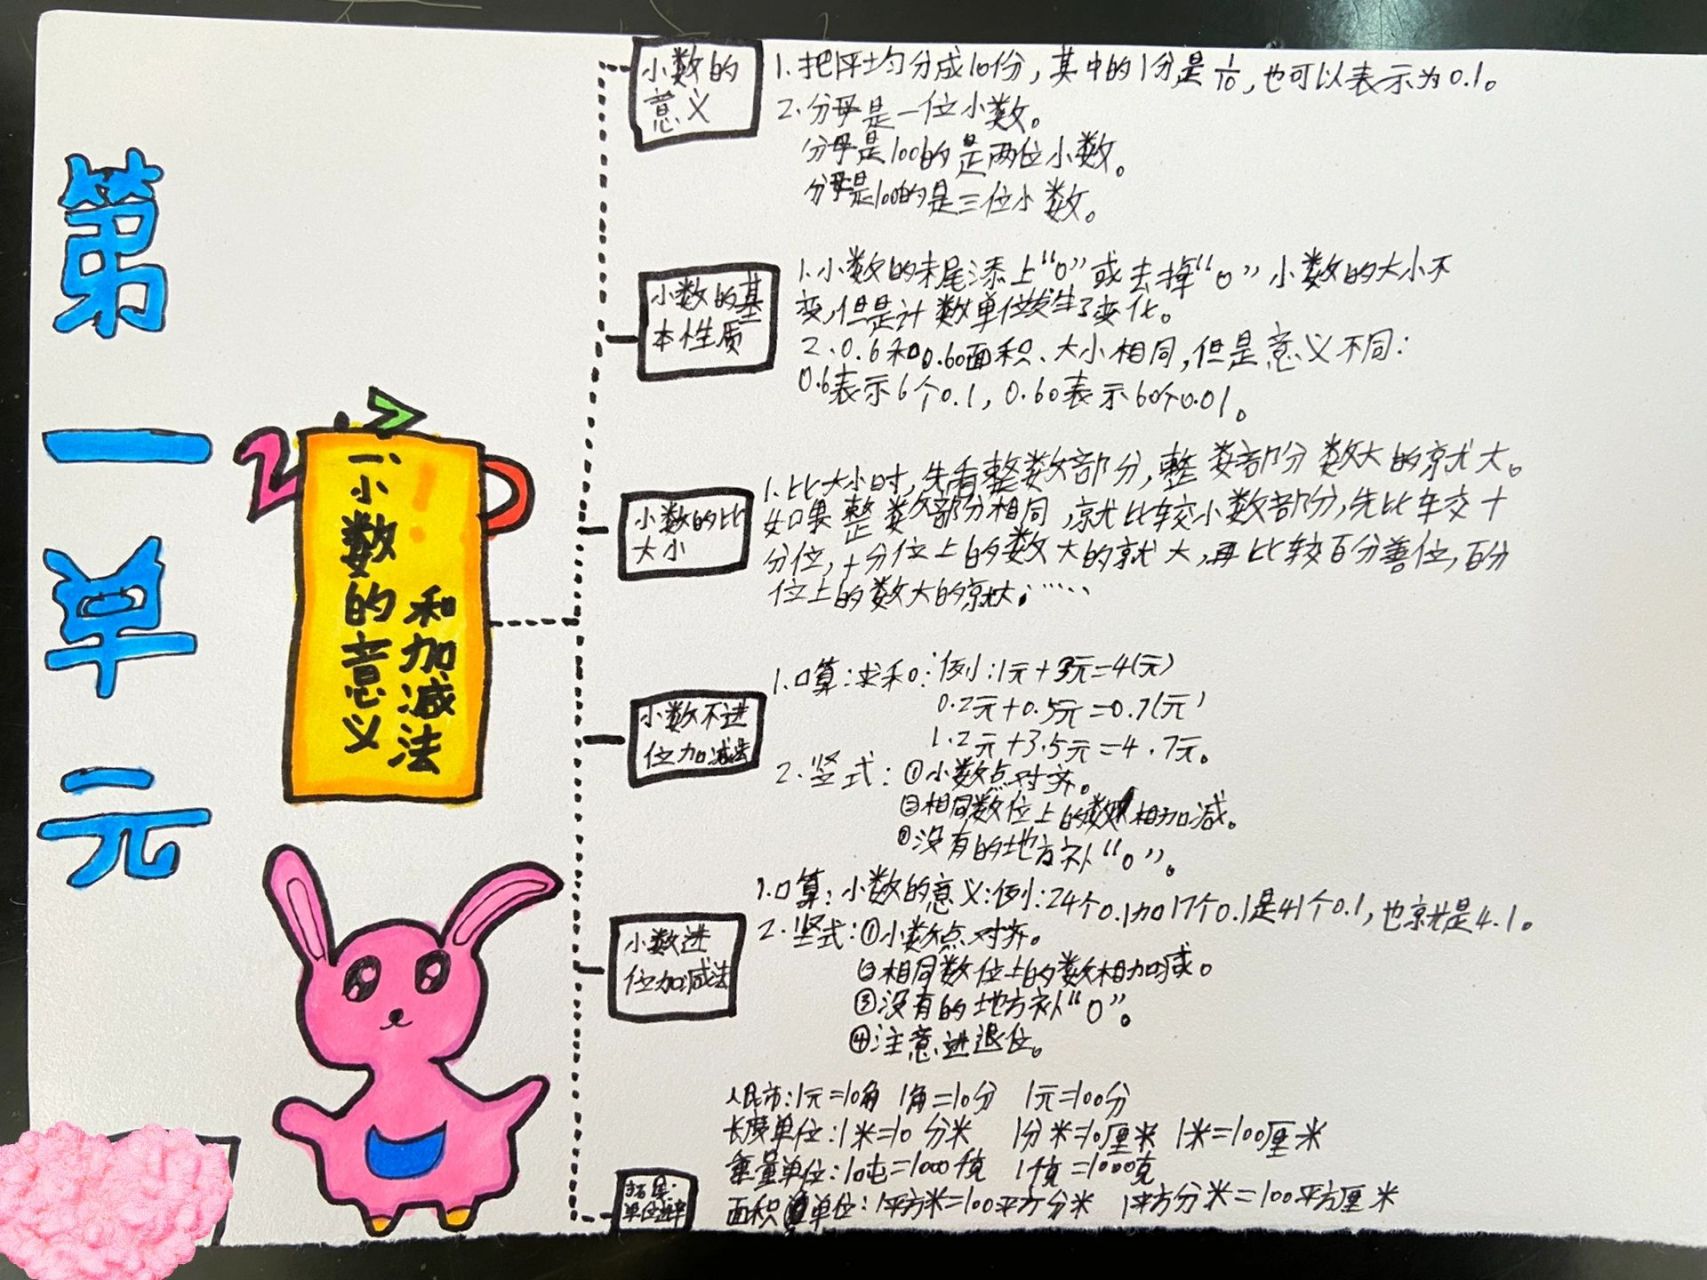 第一单元
一、小数的意义
和加减法
小数的
意义
1.把平均分成10份，其中的1分是1/10，也可以表示为0.1。
2.分母是一位小数。
分母是100的是两位小数。
分母是1000的是三位小数。
小数的基
本性质
1.小数的末尾添上“0”或去掉“0”小数的大小不
变，但是计数单位发生了变化。
2.0.6和0.60面积、大小相同，但是意义不同：
0.6表示6个0.1，0.60表示60个0.01。
小数的比
大小
1.比大小时，先看整数部分，整数部分数大的就大。
如果整数部分相同，就比较小数部分，先比较十
分位，十分位上的数大的就大，再比较百分位，百分
位上的数大的就大；……
小数不进
位加减法
1.口算：求和：例：1元+3元=4(元)
0.2元+0.5元=0.7(元)
1.2元+3.5元=4.7元。
2.竖式：①小数点对齐。
②相同数位上的数相加减。
③没有的地方补“0”。
小数进
位加减法
1.口算：小数的意义：例：24个0.1加17个0.1是41个0.1，也就是4.1。
2.竖式：①小数点对齐。
②相同数位上的数相加减。
③没有的地方补“0”。
④注意进退位。
人民币：1元=10角 1角=10分 1元=100分
长度单位：1米=10分米 1分米=10厘米 1米=100厘米
重量单位：10吨=1000千克 1千克=1000克
面积单位：1平方米=100平方分米 1平方分米=100平方厘米